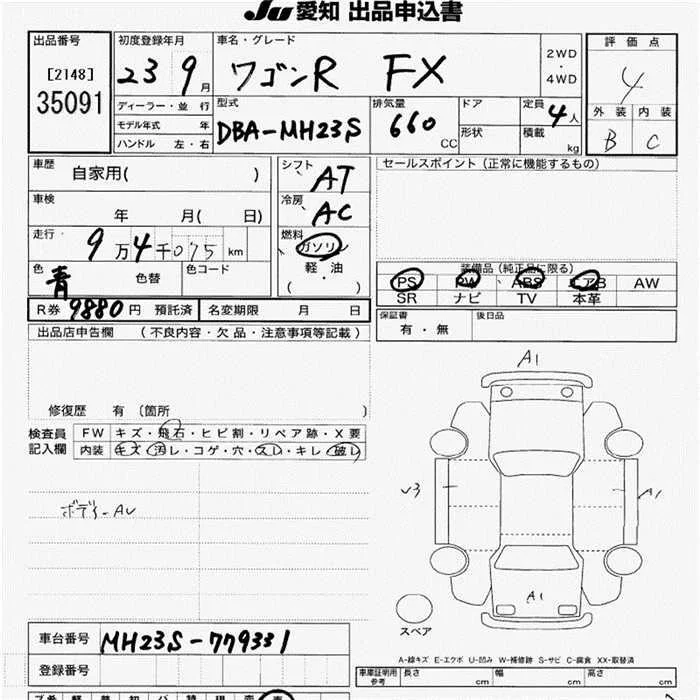 JU 愛知 出品申込書
出品番号
[2148]
35091
初度登録年月
23 9月
ディーラー・並 行
モデル年式 年
ハンドル 左・右
車名・グレード
ワゴンR FX
2WD
・
4WD
型式
DBA-MH23S
排気量
660
CC
ドア
形状
定員
4人
積載
kg
評価点
4
外装 内装
B C
車歴
自家用( )
車検
年 月( 日)
走行
9万4千075 km
色
青 色替
色コード
シフト
AT
冷房
AC
燃料
ガソリン
軽・油
( ・ )
セールスポイント（正常に機能するもの）
装備品（純正品に限る）
PS PW ABS エアB AW
SR ナビ TV 本革
R券 9880円 預託済
名変期限 月 日
保証書
有・無
後日品
出品店申告欄 （不良内容・欠品・注意事項等記載）
修復歴 有（箇所 ）
検査員
記入欄
FW キズ・飛石・ヒビ割・リペア跡・X要
内装 キズ・汚レ・コゲ・穴・スレ・キレ・破レ
ボディーAU
A1
U3
A1
A1
スペア
A-線キズ E-エクボ U-凹み W-補修跡 S-サビ C-腐食 XX-取替済
車台番号
MH23S-779331
登録番号
車庫証明用
参考
長さ cm
幅 cm
高さ cm